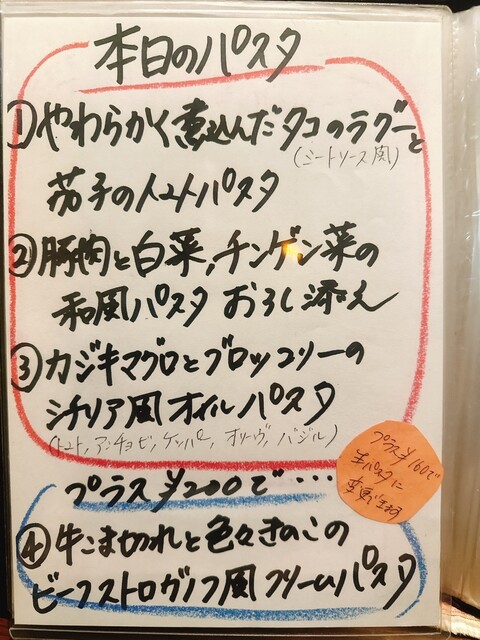 本日のパスタ
①やわらかく煮込んだタコのラグーと
(ミートソース風)
茄子のトマトパスタ
②豚肉と白菜,チンゲン菜の
和風パスタ おろし添え
③カジキマグロとブロッコリーの
シチリア風オイルパスタ
(トマト,アンチョビ,ケッパー,オリーヴ,バジル)
プラス¥200で・・・
④牛こま切れと色々きのこの
ビーフストロガノフ風クリームパスタ
プラス¥160で
生パスタに
変更できます